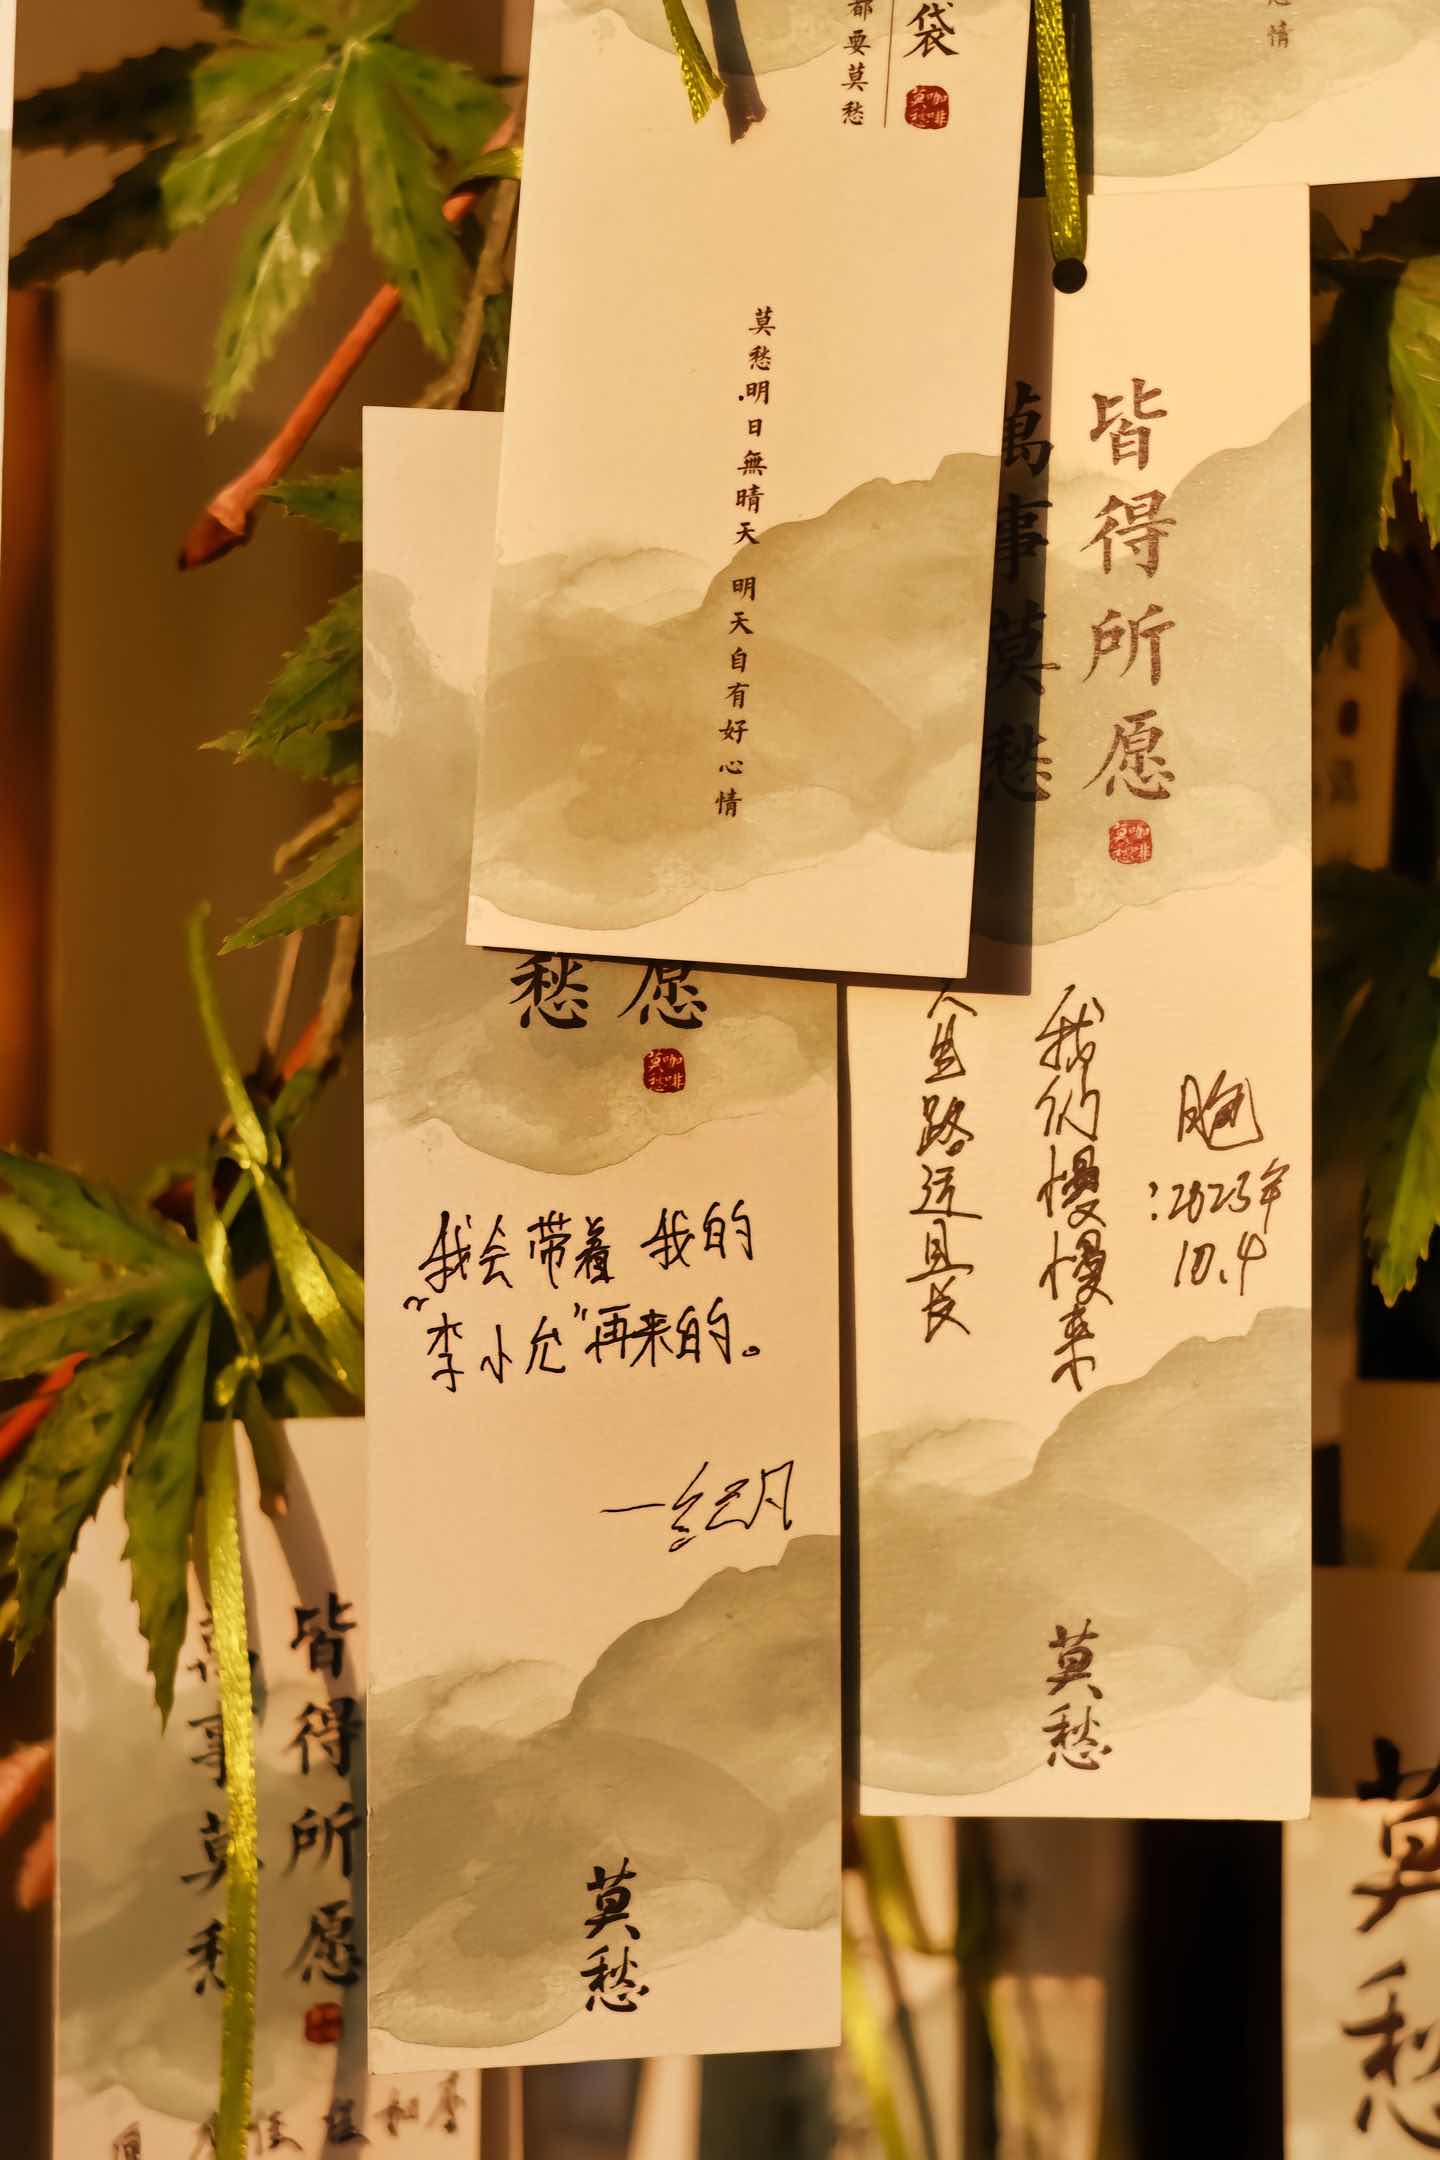 袋
都要莫愁
莫愁咖啡
情
莫愁明日無晴天 明天自有好心情
皆得所愿
萬事莫愁
莫愁咖啡
人生路远且长
我们慢慢来
2025年
10.4
莫愁
愿
愁
莫愁咖啡
我会带着 我的
“李小允”再来的。
莫愁
皆得所愿
萬事莫愁
莫愁